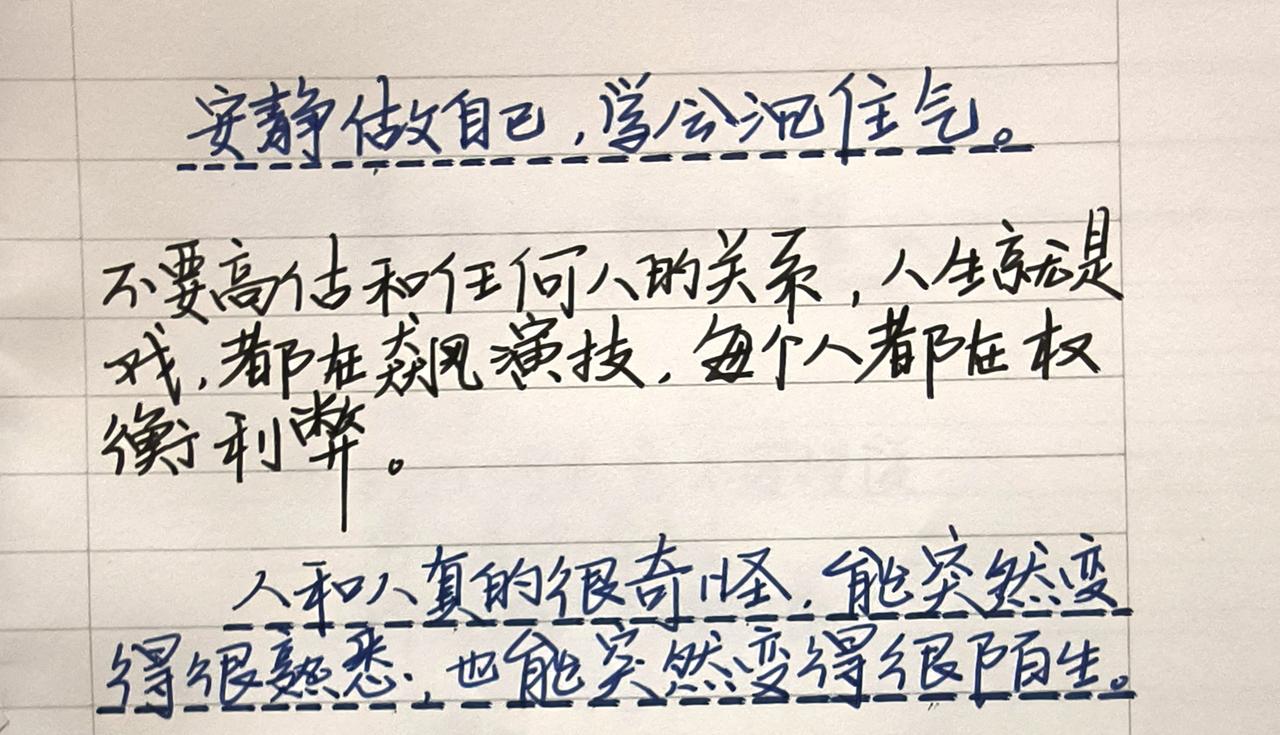 安静做自己，学会沉住气。
不要高估和任何人的关系，人生就是
戏，都在飙演技，每个人都在权
衡利弊。
人和人真的很奇怪，能突然变
得很熟悉，也能突然变得很陌生。